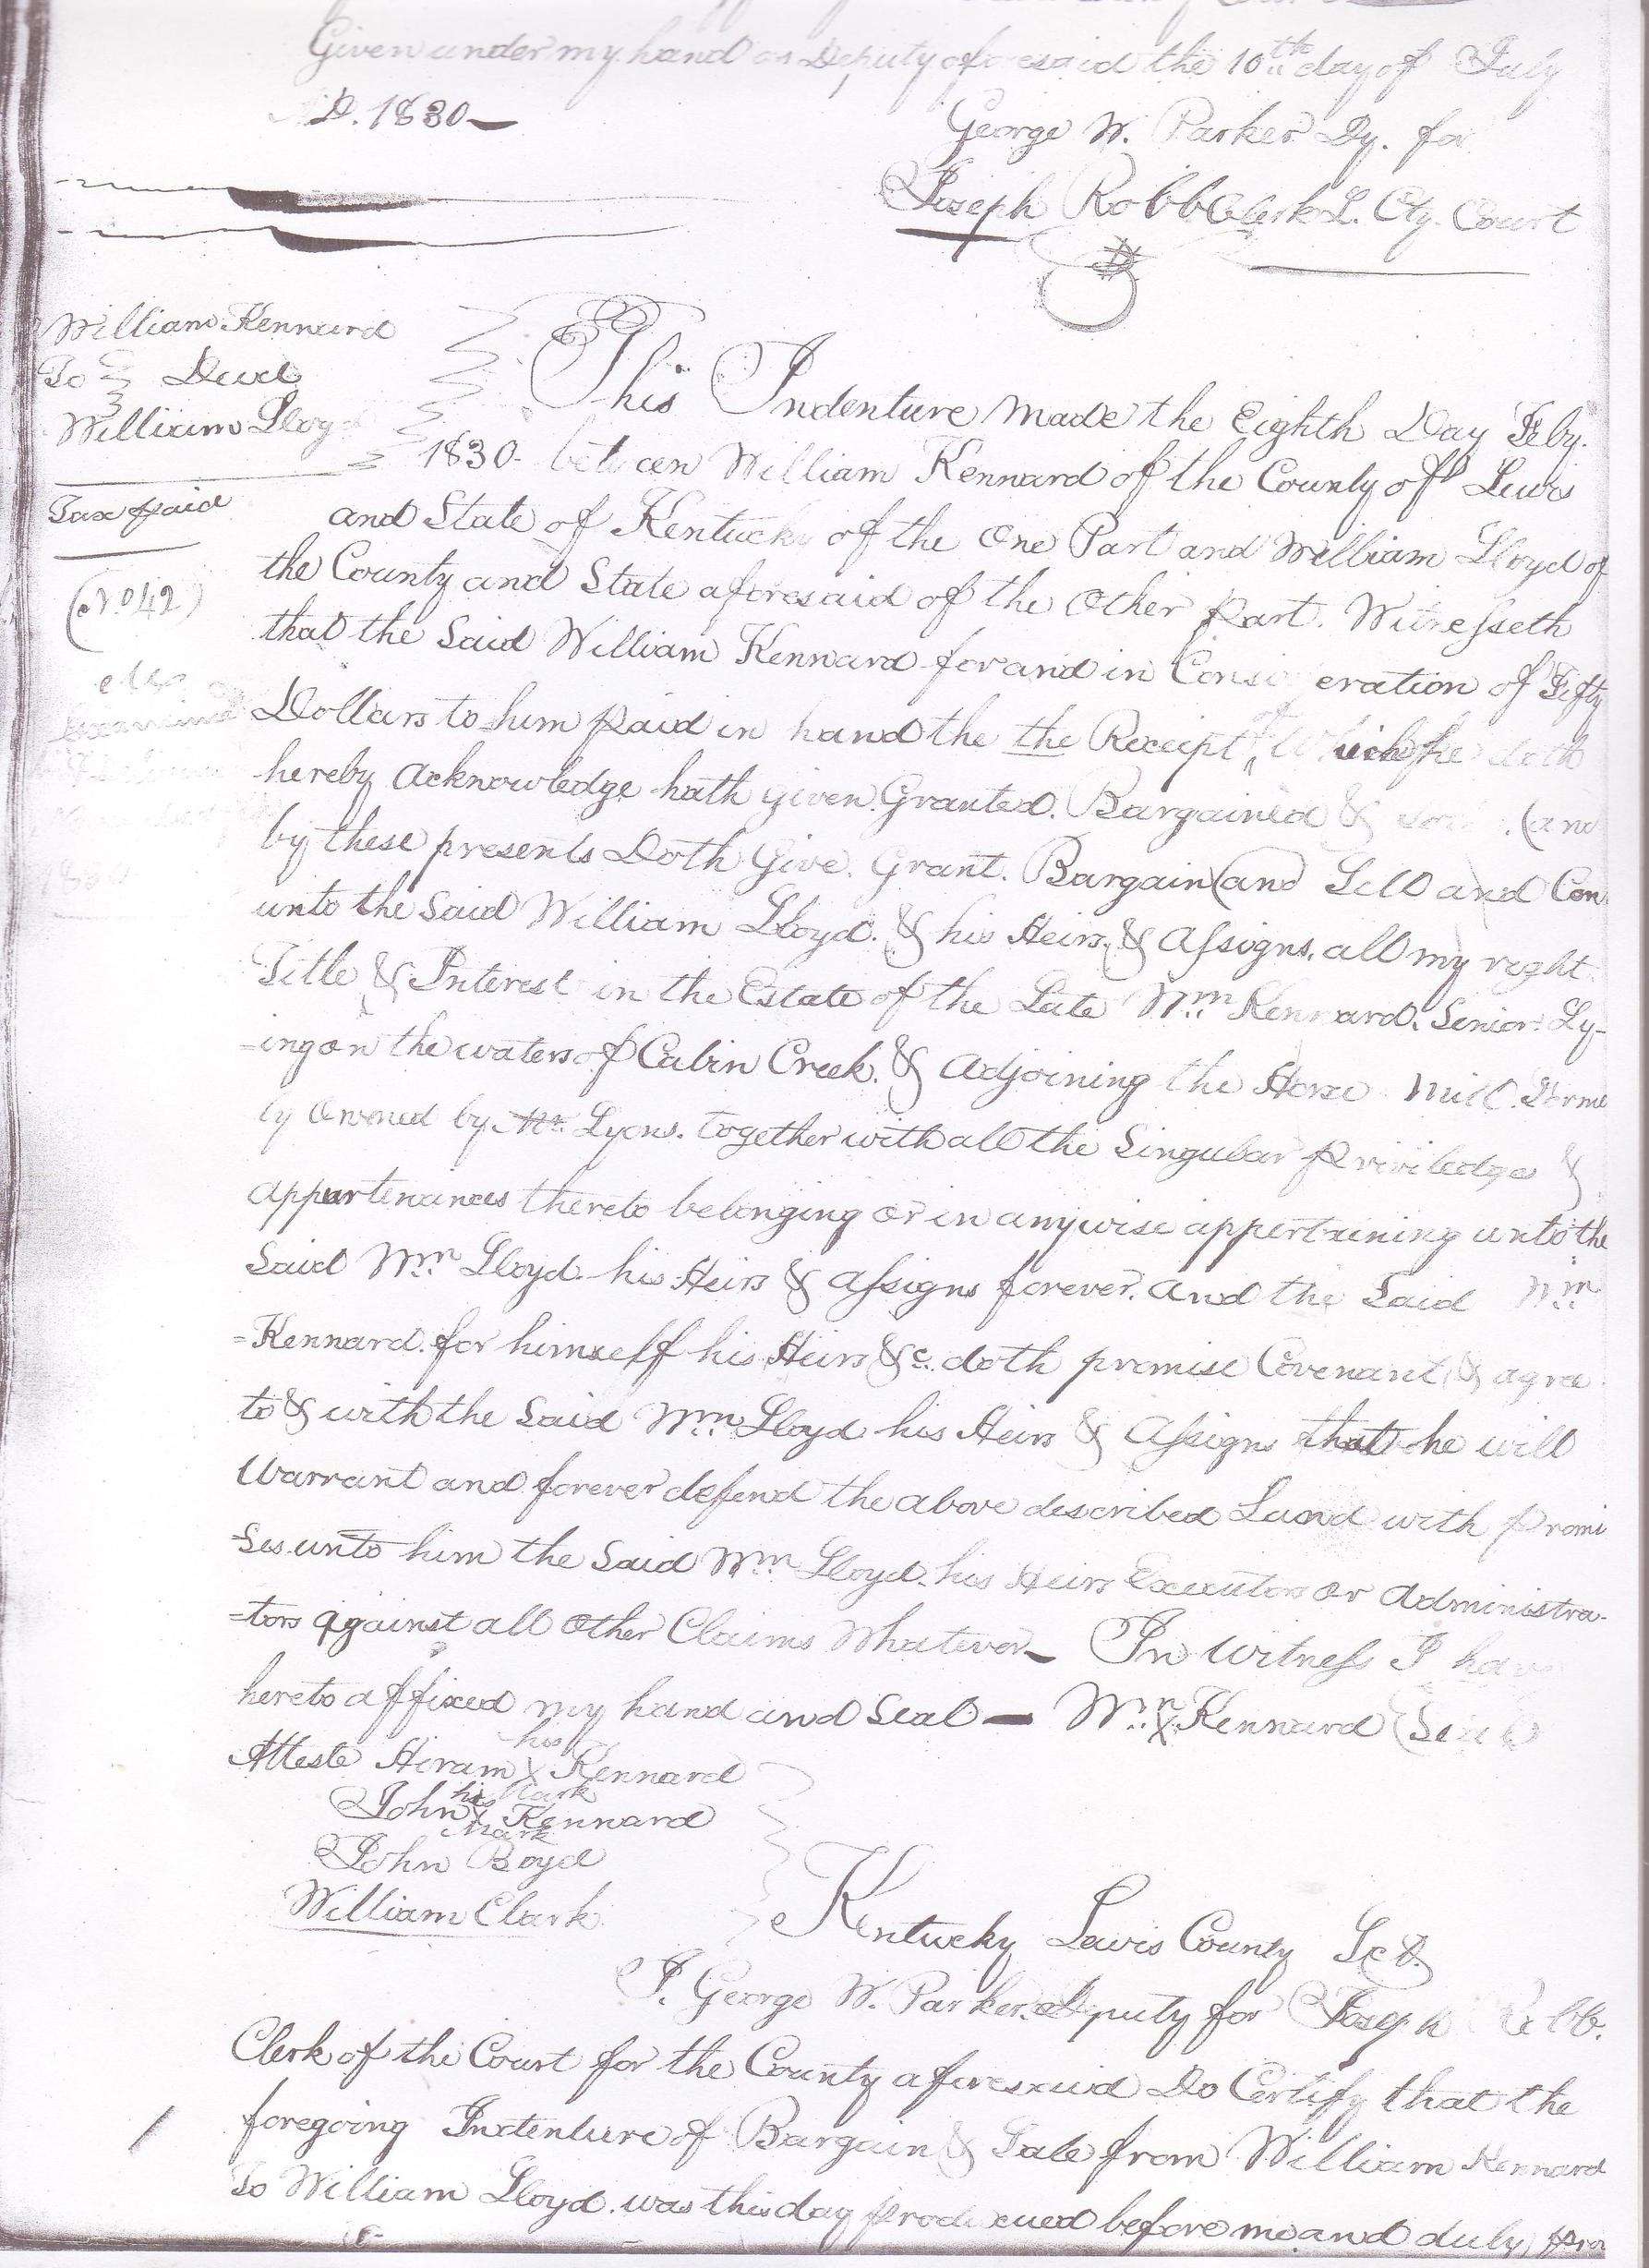 Given under my hand as Deputy aforesaid the 10th day of July
A.D. 1830
George W. Parker Dy. for
Joseph Robb Clerk L. Cty. Court
William Kennard
To Deed
William Lloyd
Tax paid
(No 42)
examined
1830
This Indenture made the Eighth Day Feby.
1830 between William Kennard of the County of Lewis
and State of Kentucky of the One Part and William Lloyd of
the County and State aforesaid of the Other part. Witnesseth
that the Said William Kennard for and in Consideration of Fifty
Dollars to him paid in hand the the Receipt of which he doth
hereby acknowledge hath given. Granted. Bargained & (and
by these presents Doth Give. Grant. Bargain (and) Sell and Con
unto the Said William Lloyd. & his Heirs, & assigns, all my right
Title & Interest in the Estate of the Late Wm Kennard. Senior. Ly-
=ing on the waters of Cabin Creek. & adjoining the Horse Mill. Forme
ly owened by Mr. Lyons. together with all the Singular priviledges &
appurtenances thereto belonging or in anywise appertaining unto the
Said Wm Lloyd his Heirs & assigns forever. and the Said Wm
=Kennard. for himself his Heirs &c. doth promise Covenant, & agree
to & with the Said Wm Lloyd his Heirs & assigns that he will
Warrant and forever defend the above described Land with promi
=ses unto him the Said Wm Lloyd. his Heirs Executors or administra-
=tors against all other Claims Whatever In Witness I have
hereto affixed my hand and Seal — Wm X Kennard (Seal
his
Atteste Hiram X Kennard
his Mark
John X Kennard
Mark
John Boyd
William Clark
Kentucky Lewis County Sct.
I. George W. Parker. Deputy for Joseph Robb.
Clerk of the Court for the County aforesaid Do Certify that the
foregoing Indenture of Bargain & Sale from William Kennard
To William Lloyd. was this day produced before me and duly pro